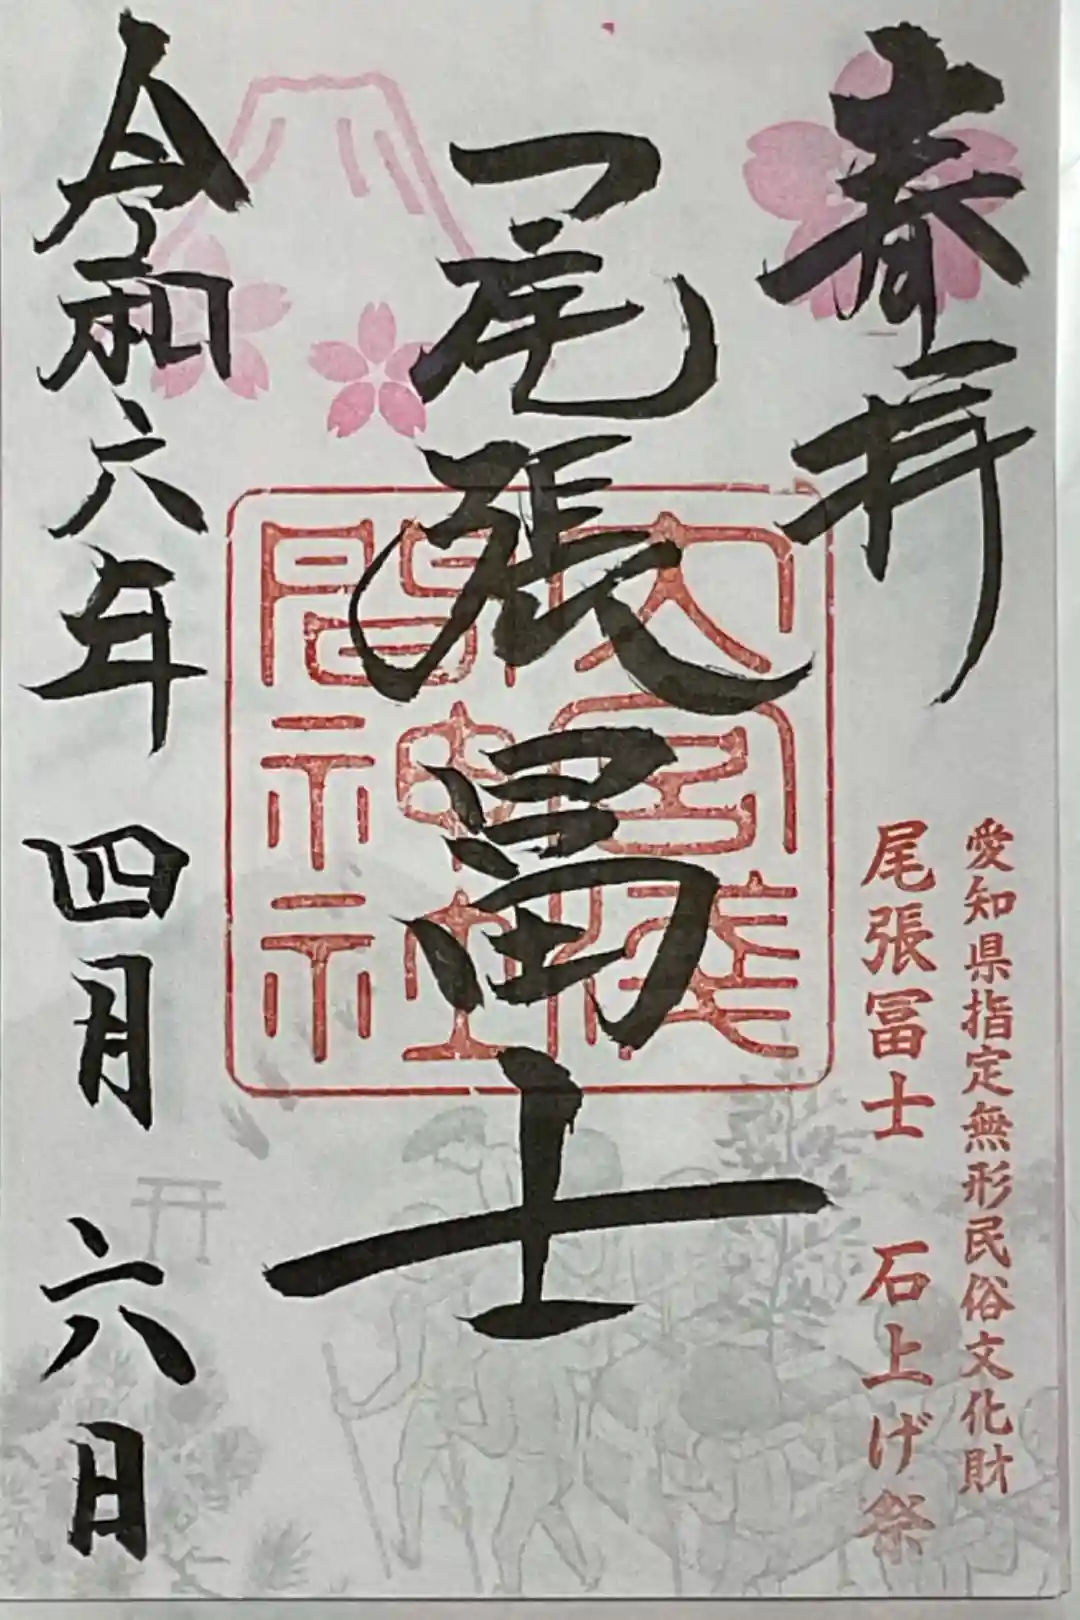 奉拝
愛知県指定無形民俗文化財
尾張冨士 石上げ祭
尾張冨士
大宮浅
間神社
令和六年四月六日